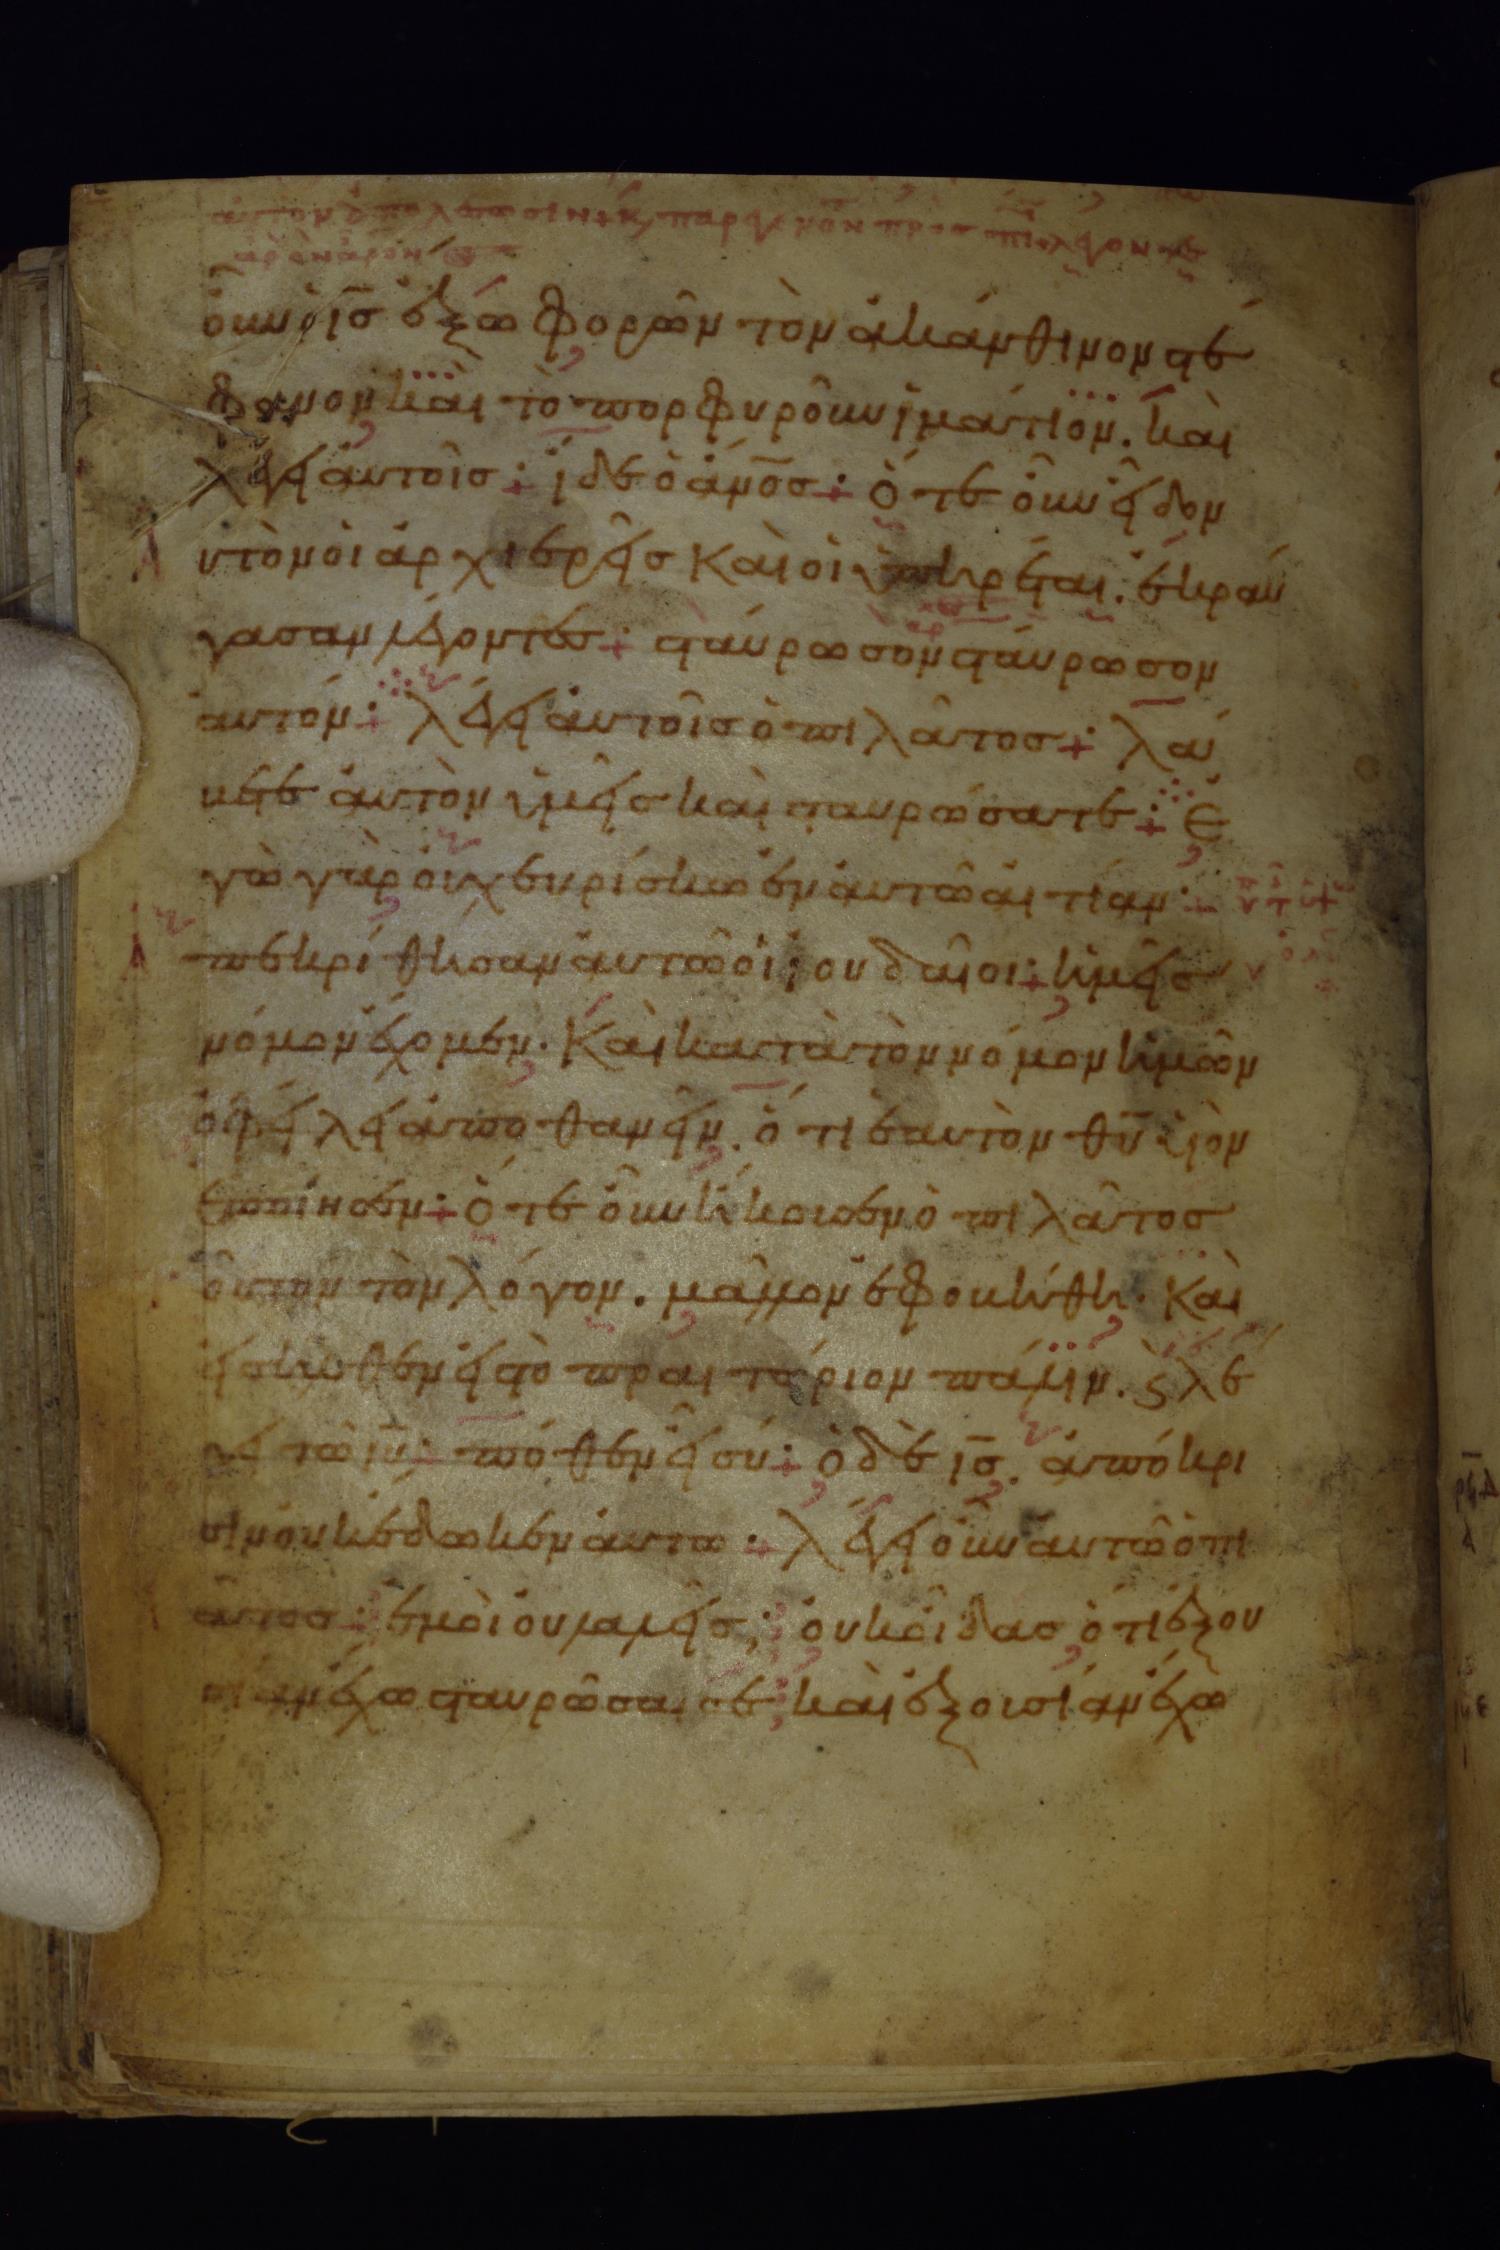 οὖν ὁ ισ ἔξω φορῶν τὸν ἀκάνθινον στέ
φανον καὶ τὸ πορφυροῦν ἱμάτιον. καὶ
λέγει αὐτοῖσ: ἴδε ὁ ἄνοσ: ὅτε οὖν εἶδον
αὐτὸν οἱ ἀρχιερεῖσ καὶ οἱ ὑπηρέται. ἐκραύ
γασαν λέγοντεσ: σταύρωσον σταύρωσον
αὐτόν: λέγει αὐτοῖσ ὁ πιλᾶτοσ: λά
βετε αὐτὸν ὑμεῖσ καὶ σταυρώσατε: ἐ
γὼ γὰρ οὐχ εὑρίσκω ἐν αὐτῶ αἰτίαν:
ἀπεκρίθησαν αὐτῶ οἱ ἰουδαῖοι: ἡμεῖσ
νόμον ἔχομεν. καὶ κατὰ τὸν νόμον ἡμῶν
ὀφείλει ἀποθανεῖν. ὅτι ἑαυτὸν θυ υἱὸν
ἐποίησεν: ὅτε οὖν ἤκουσεν ὁ πιλᾶτοσ
τοῦτον τὸν λόγον. μᾶλλον ἐφοβήθη. καὶ
εἰσῆλθεν εἰσ τὸ πραιτώριον πάλιν. ϗ λέ
γει τῶ ιυ: πόθεν εἶ σύ: ὁ δὲ ισ. ἀπόκρι
σιν οὐκ ἔδωκεν αὐτῶ: λέγει οὖν αὐτῶ ὁ πι
λᾶτοσ: ἐμοὶ οὐ λαλεῖσ; οὐκ οἶδασ ὅτι ἐξου
σίαν ἔχω σταυρῶσαι σε: καὶ ἐξουσίαν ἔχω